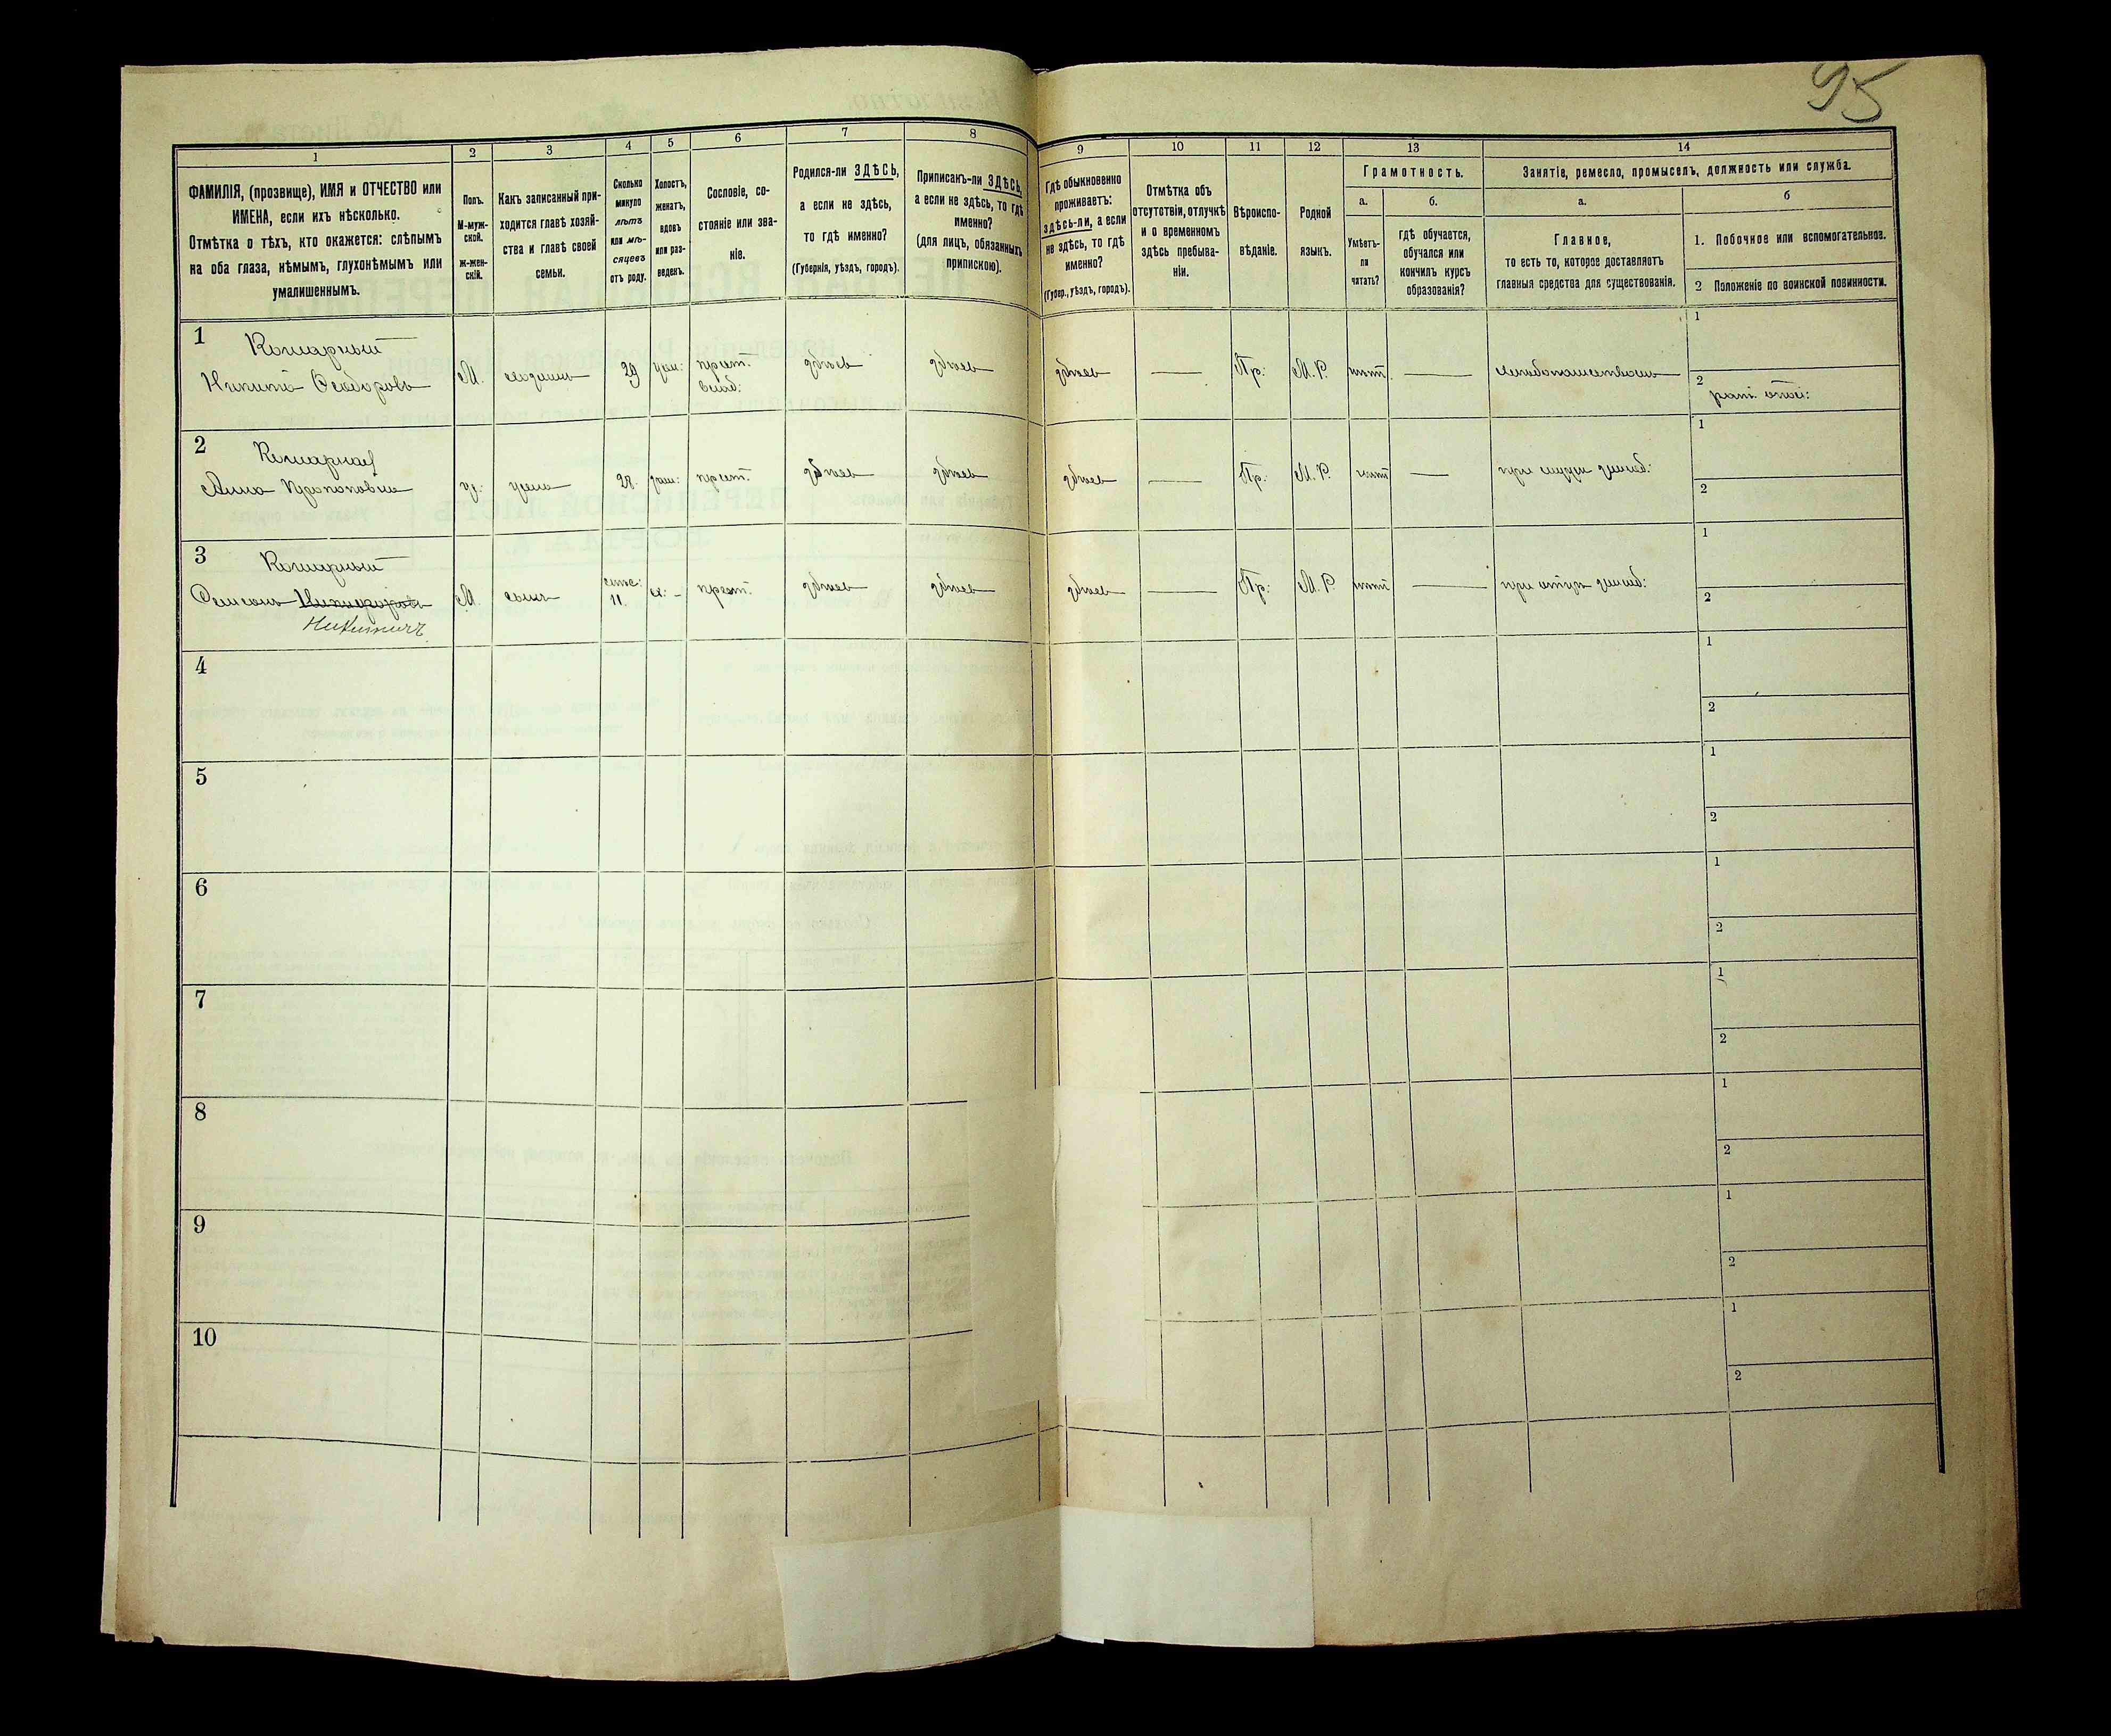 95
1 2 3 4 5 6 7 8 9 10 11 12 13 14
ФАМИЛІЯ, (прозвище), ИМЯ и ОТЧЕСТВО или
ИМЕНА, если ихъ нѣсколько.
Отмѣтка о тѣхъ, кто окажется: слѣпымъ
на оба глаза, нѣмымъ, глухонѣмымъ или
умалишеннымъ.
Полъ.
М-муж-
ской.
ж-жен-
скій.
Какъ записанный при-
ходится главѣ хозяй-
ства и главѣ своей
семьи.
Сколько
минуло
лѣтъ
или мѣ-
сяцевъ
отъ роду.
Холостъ,
женатъ,
вдовъ
или раз-
веденъ.
Сословіе, со-
стояніе или зва-
ніе.
Родился-ли ЗДѢСЬ,
а если не здѣсь,
то гдѣ именно?
(Губернія, уѣздъ, городъ).
Приписанъ-ли ЗДѢСЬ,
а если не здѣсь, то гдѣ
именно?
(для лицъ, обязанныхъ
припискою).
Гдѣ обыкновенно
проживаетъ:
здѣсь-ли, а если
не здѣсь, то гдѣ
именно?
(Губер., уѣздъ, городъ).
Отмѣтка объ
отсутствіи, отлучкѣ
и о временномъ
здѣсь пребыва-
ніи.
Вѣроиспо-
вѣданіе.
Родной
языкъ.
Грамотность.
а.
Умѣетъ-
ли
читать?
б.
гдѣ обучается,
обучался или
кончилъ курсъ
образованія?
Занятіе, ремесло, промыселъ, должность или служба.
а.
Главное,
то есть то, которое доставляетъ
главныя средства для существованія.
б
1. Побочное или вспомогательное.
2 Положеніе по воинской повинности.
1
Кошарный
Никита Феодоровъ
М. хозяинъ 29 жен: крест. влад: здѣсь здѣсь здѣсь Пр: М. Р. нѣтъ
1
2
2
Кошарная
Анна
ж: жена 28. зам: крест. здѣсь здѣсь здѣсь Пр: М. Р. нѣтъ при мужѣ
1
2
3
Кошарный
Самсонъ Никифоровъ
Никитичъ
М. сынъ 11. х: крест. здѣсь здѣсь здѣсь Пр: М. Р. нѣтъ при отцѣ
1
2
4
1
2
5
1
2
6
1
2
7
1
2
8
1
2
9
1
2
10
1
2